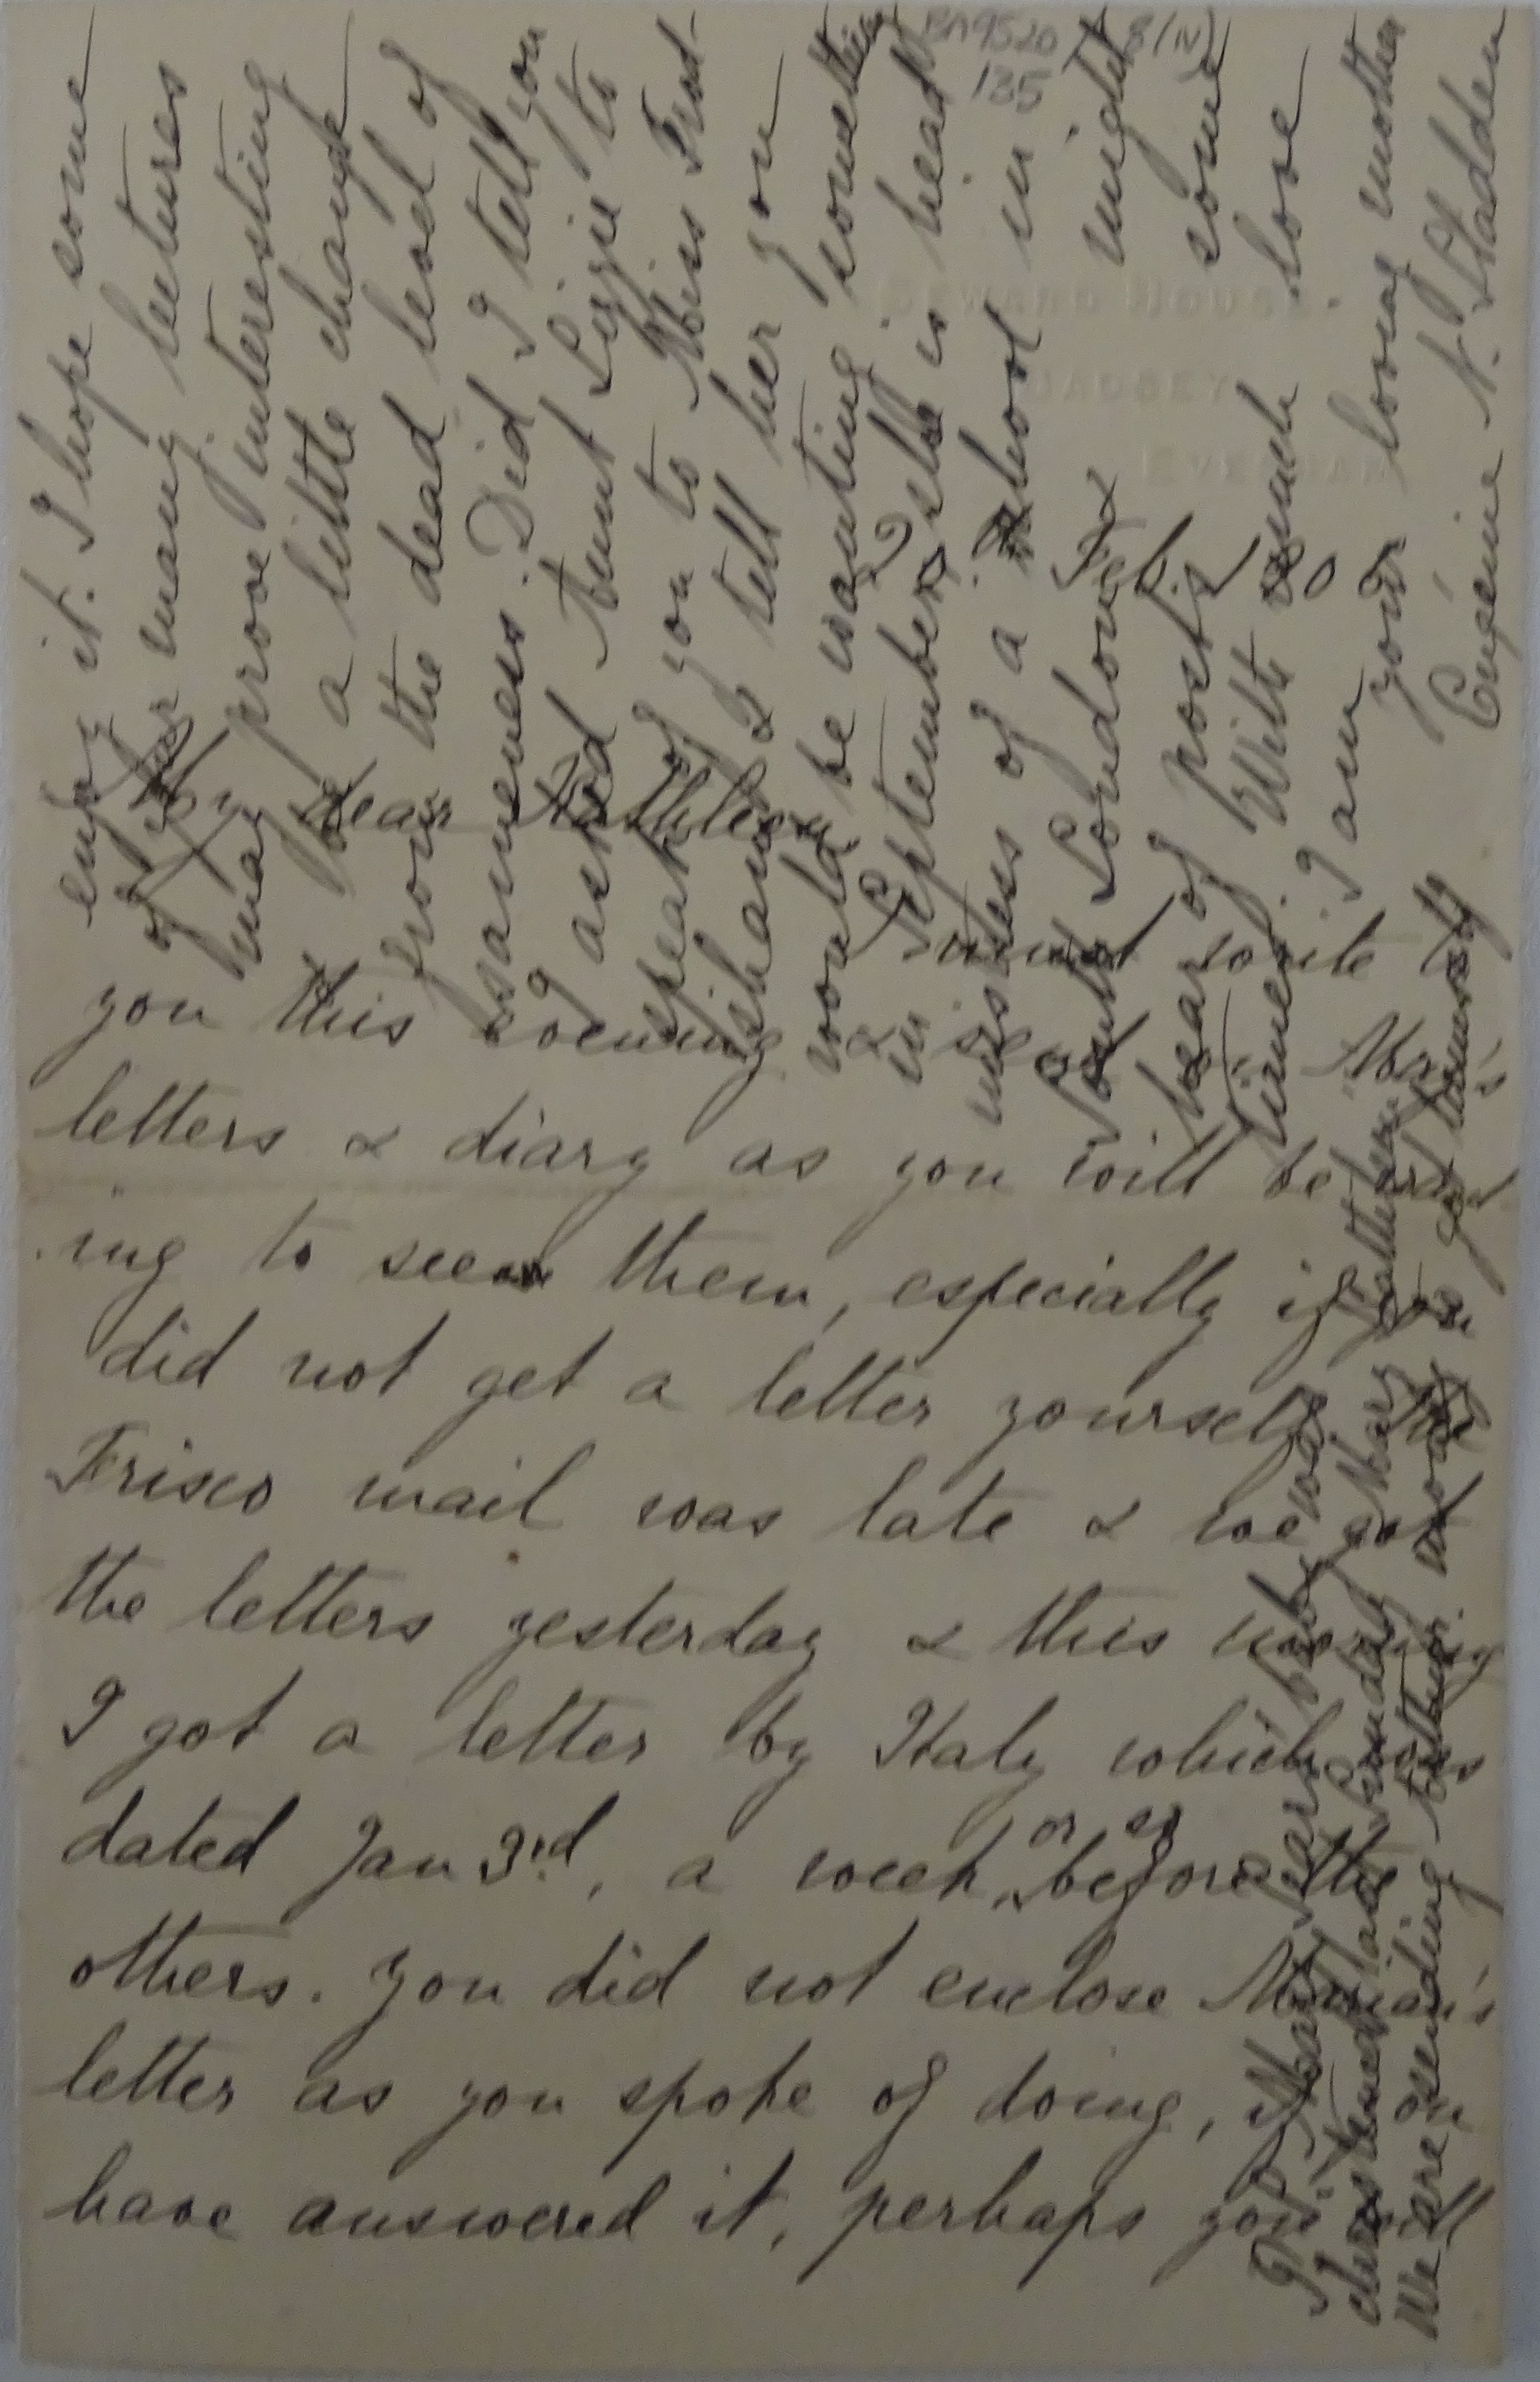 BA9520
135
SEWARD HOUSE.
BADSEY
EVESHAM
Feb. 20
My dear Kathleen
I must write to
you this evening & send you May's
letters & diary as you will be want
ing to see them, especially if you
did not get a letter yourself. The
Frisco mail was late & we got
the letters yesterday & this morning
I got a letter by Italy which was
dated Jan 3rd, a week or so before the
others. You did not enclose Marian's
letter as you spoke of doing, if you
have answered it, perhaps you will
enjoy it. I hope some
of your many lectures
may prove interesting
& be a little change
from the dead level of
sameness. Did I tell you
I asked Aunt Lizzie to
speak of you to Miss Frod-
isham & tell her you
would be wanting something
in September? She is head
mistress of a school in
South London & might
hear of posts some
time. With much love
I am your loving mother
Eugénie N. Sladden
P.S. Mary Sears' baby was
christened last Sunday Mary Katherine
We are sending Arthur away